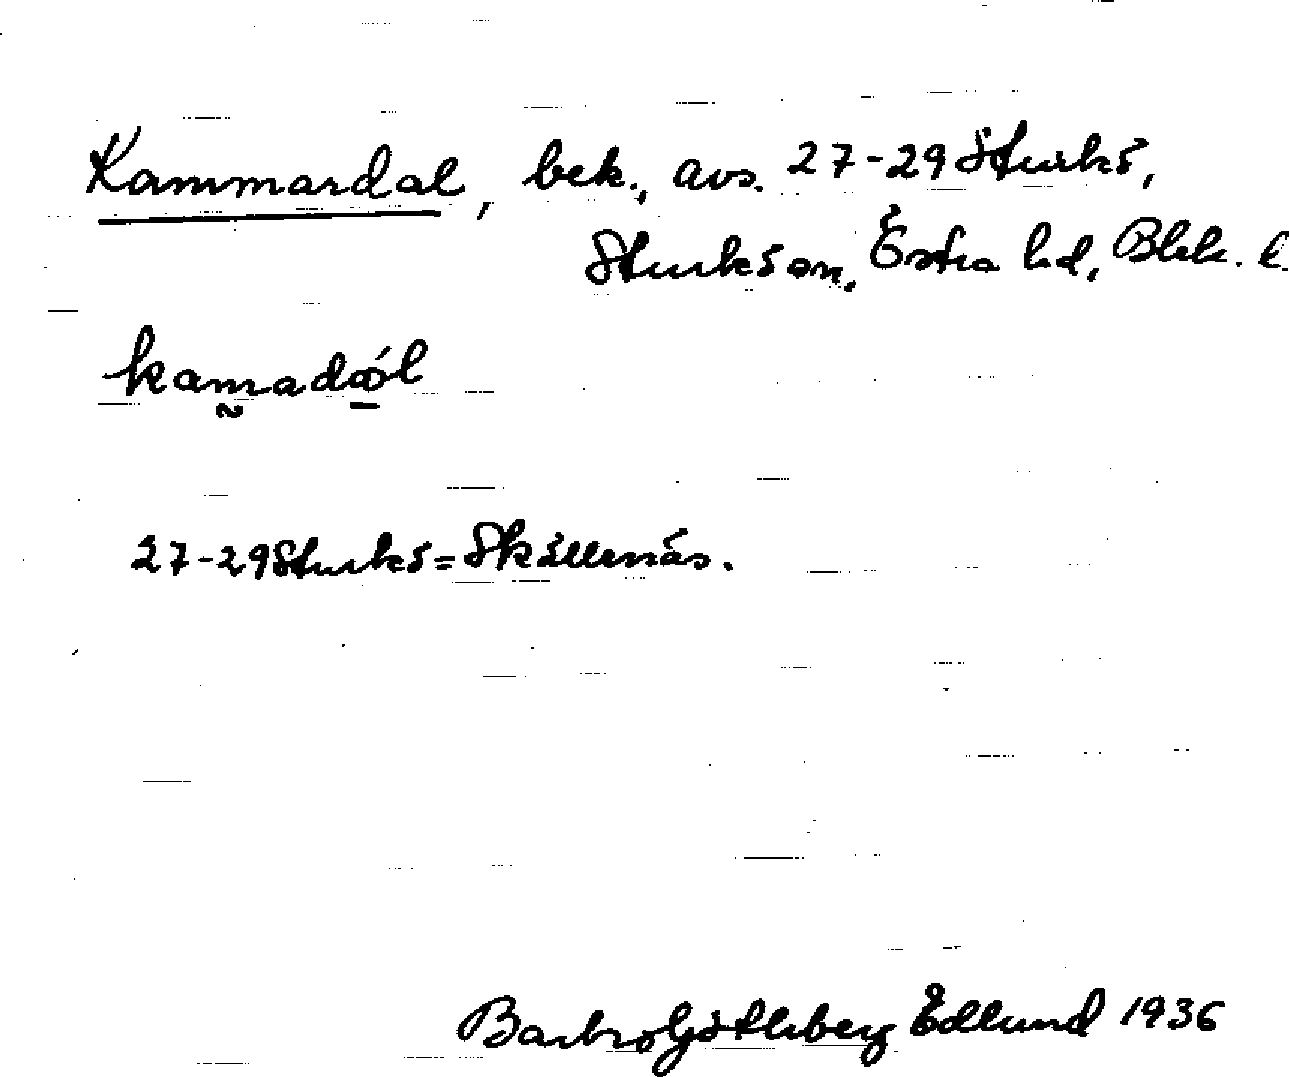 Kammardal, bek., avs. 27-29 Sturkö,
Sturkö sn, Östra hd, Blek. l.
kamadál
27-29 Sturkö = Skällenäs.
Barbro Götleberg Edlund 1936